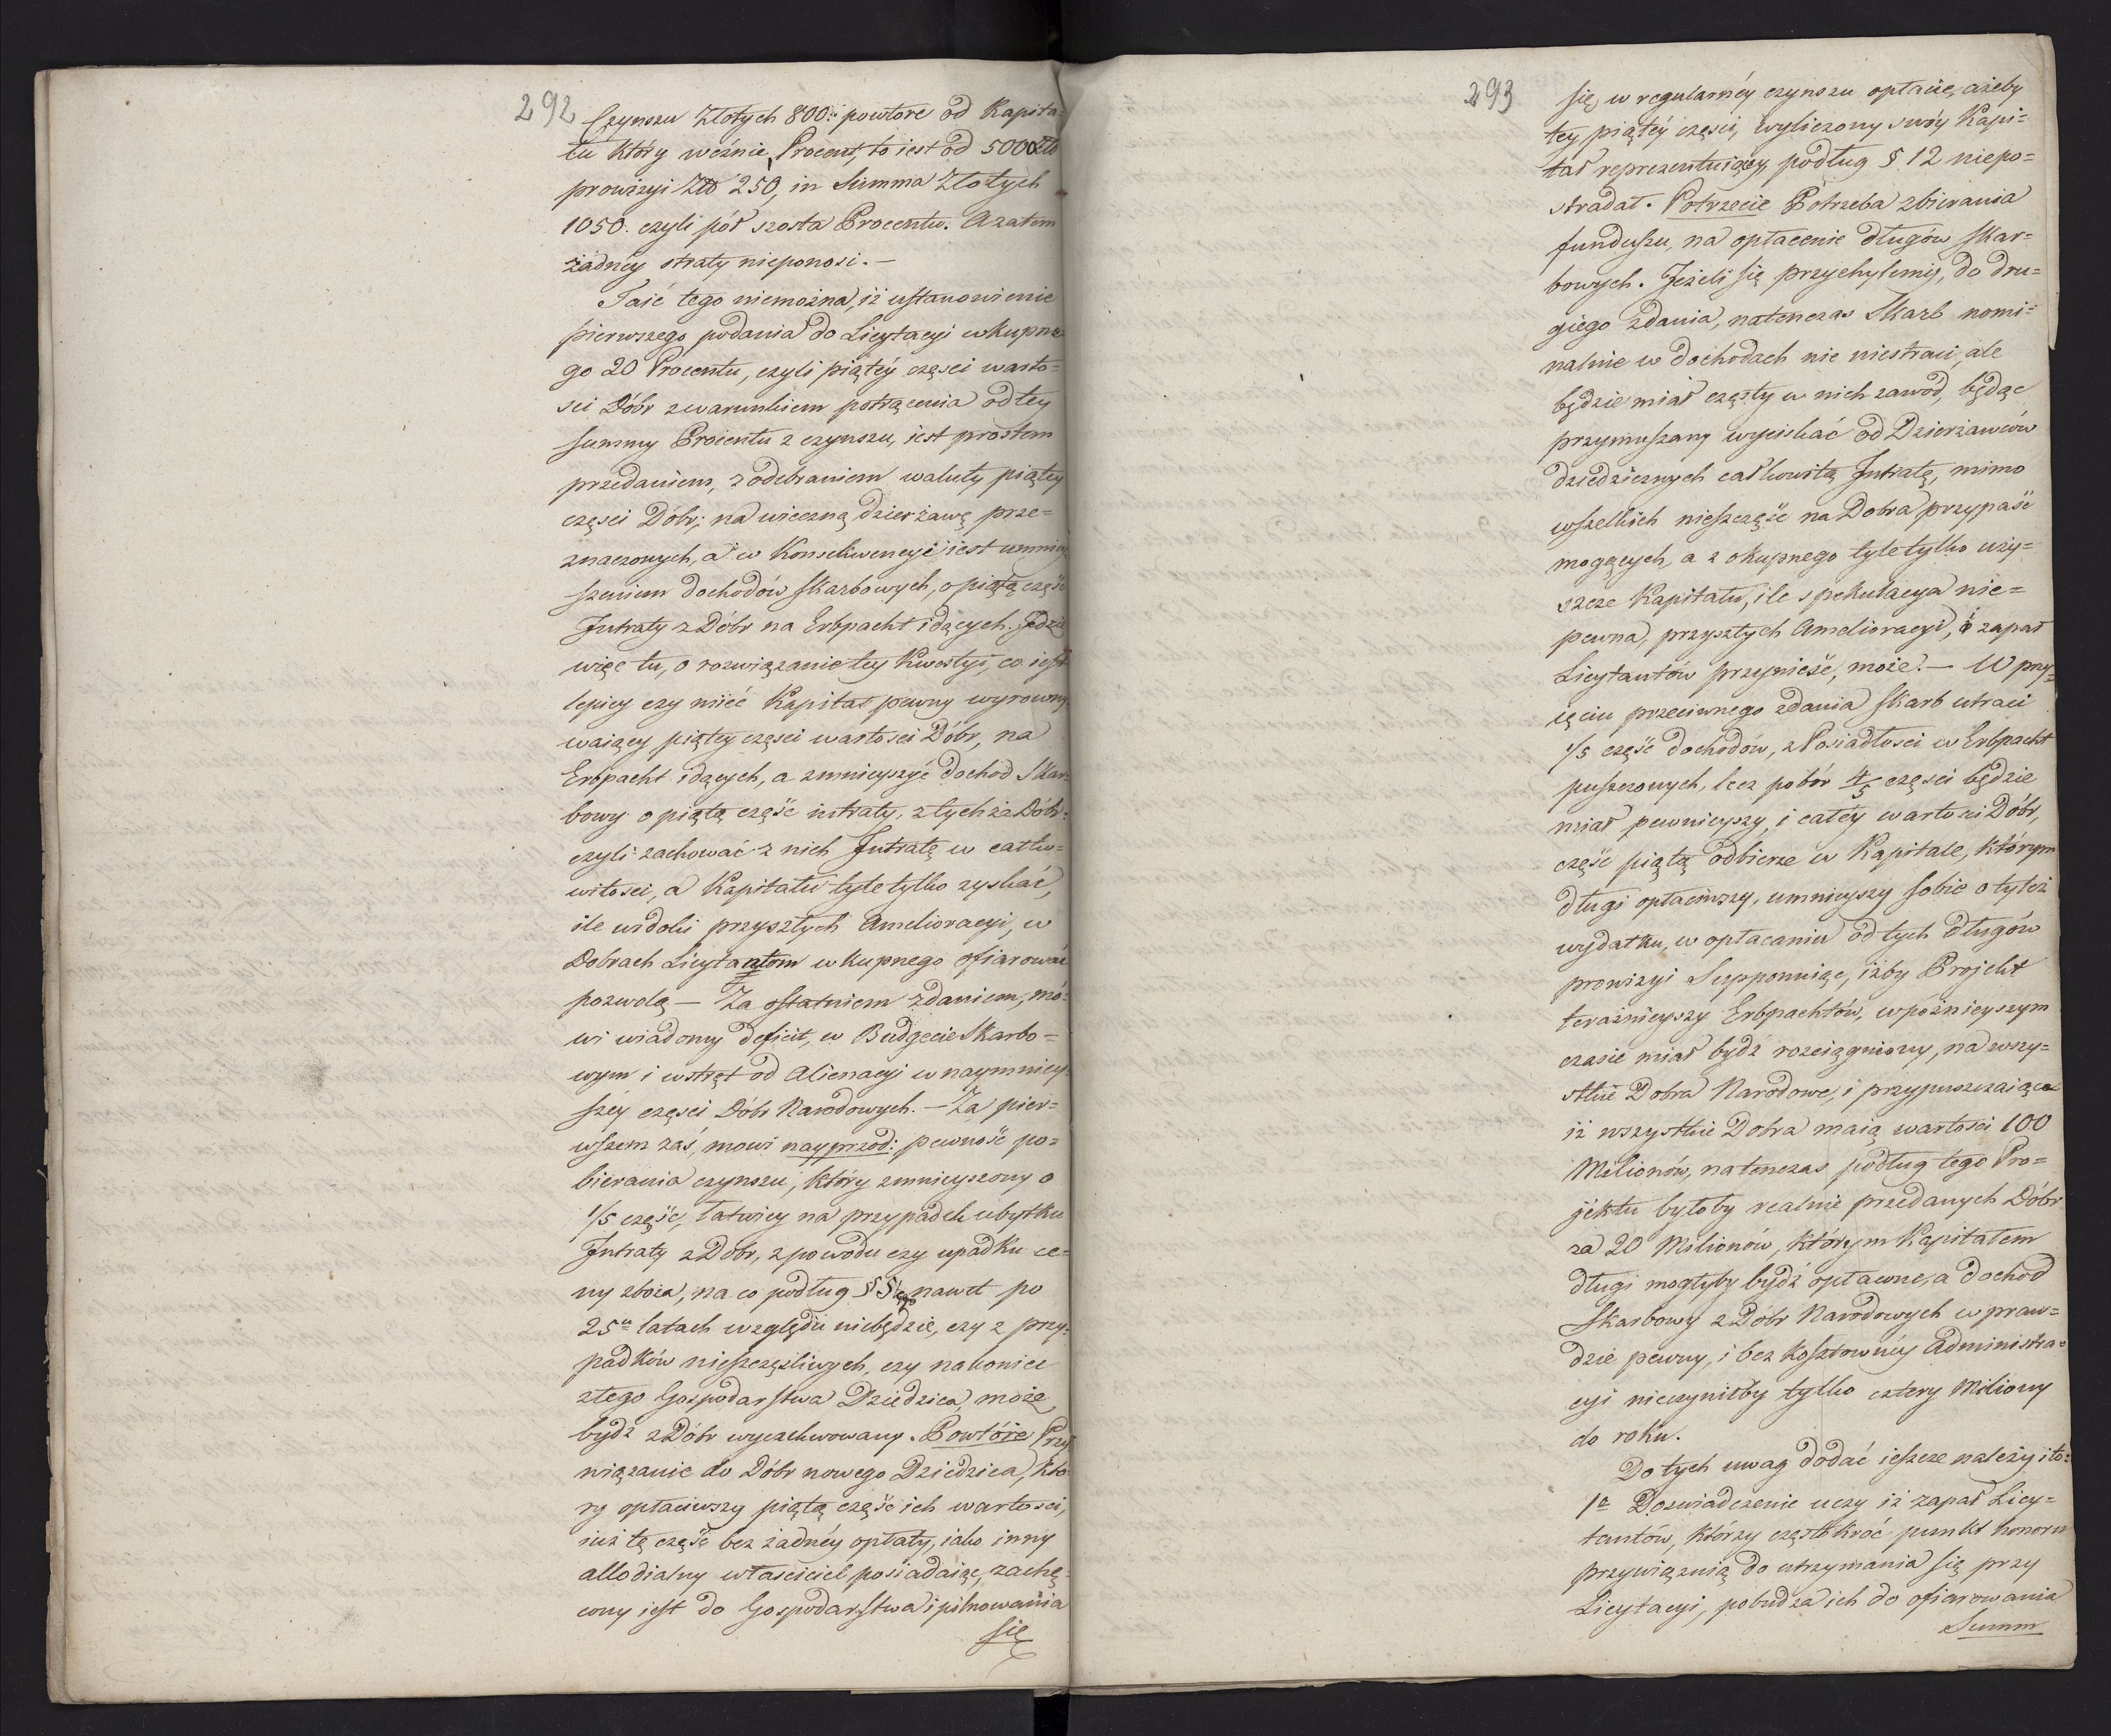 292
Czynszu Złotych 800: powtore od Kapita=
łu który weźnie Procent, to iest od 5000 Złt
prowizyi Złt 250, in Summa Złotych
1050. czyli pół szosta Procentu. A zatem
żadnéy straty nieponosi. —
Taić tego niemożna, iż ustanowienie
pierwszego podania do Licytacyi wkupne=
go 20 Procentu, czyli piątéy części warto=
ści Dóbr z warunkiem potrącenia od tey
summy Procentu z czynszu, iest prostem
przedaniem, z odebraniem waluty piątey
części Dóbr, na wieczną dzierżawę prze=
znaczonych, a w Konsekwencyi iest umniey
szeniem dochodów Skarbowych, o piątą część
Jntraty z Dóbr na Erbpacht idących. Jdzie
więc tu, o rozwiązanie tey Kwestyi, co iest
lepiey czy mieć Kapitał pewny wyrowny=
waiący piątey części wartości Dóbr, na
Erbpacht idących, a zmnieyszyć dochod Skar=
bowy o piątą część intraty, z tychże Dóbr:
czyli zachować z nich Jntratę w całko=
witości, a Kapitału tyle tylko zyskać,
ile widoki przyszłych Amelioracyi, w
Dobrach Licytantom wkupnego ofiarować
pozwolą — Za ostatniem zdaniem, mó=
wi wiadomy deficit, w Budgecie Skarbo=
wym i wstręt od Alienacyi w naymniey=
széy części Dóbr Narodowych. — Za pier=
wszem zaś, mowi nayprzod: pewność po=
bierania czynszu, który zmnieyszony o
1/5 część, łatwiey na przypadek ubytku
Jntraty z Dóbr, z powodu czy upadku ce=
ny zboża, na co podług § nawet po
25u latach względu niebędzie, czy z przy=
padków nieszczęśliwych, czy nakoniec
złego Gospodarstwa Dziedzica, może
bydź z Dóbr wyczekwowany. Powtóre Przy=
wiązanie do Dóbr nowego Dziedzica, któ=
ry opłaciwszy piątą część ich wartości,
iuż tę część bez żadnéy opłaty, iako inny
allodialny właściciel posiadaiąc, zachę=
cony iest do Gospodarstwa i pilnowania
się
293
się w regularnéy czynszu opłacie, ażeby
tey piątéy części, wyliczony swóy Kapi=
tał reprezentuiącey, podług § 12 niepo=
stradał. Potrzecie Potrzeba zbierania
funduszu, na opłacenie długów Skar=
bowych. Jeżeli się przychylemy, do dru=
giego zdania, natenczas Skarb nomi=
nalnie w dochodach nic niestraci, ale
będzie miał częsty w nich zawód, będąc
przymuszany wyciskać od Dzierżawców
dziedzicznych całkowitą Jntratę, mimo
wszelkich nieszczęść na Dobra przypaść
mogących, a z okupnego tyle tylko uzy=
szcze Kapitału, ile spekulacya nie=
pewna, przyszłych Amelioracyi, i zapał
Licytantów przynieść, może. — W przy=
ięciu przeciwnego zdania Skarb utraci
1/5 część dochodów, z Posiadłości w Erbpacht
puszczonych, lecz pobór 4/5 części będzie
miał pewnieyszy, i całéy wartości Dóbr,
część piątą odbierze w Kapitale, którym
długi opłaciwszy, umnieyszy sobie o tyleż
wydatku, w opłacaniu od tych długów
prowizyi Supponuiąc, iżby Projekt
teraźnieyszy Erbpachtów, w późnieyszym
czasie miał bydź rozciągniony, na wszy=
stkie Dobra Narodowe, i przypuszczaiąc
iż wszystkie Dobra maią wartości 100
Milionów, natenczas podług tego Pro=
jektu byłoby realnie przedanych Dóbr
za 20 Milionów, którym Kapitałem
długi mogłyby bydź opłacone, a dochod
Skarbowy z Dóbr Narodowych w praw=
dzie pewny, i bez kosztownéy Administra=
cyi nieczyniłby tylko cztery Miliony
do roku.
Do tych uwag dodać ieszcze należy i to:
1e Doświadczenie uczy iż zapał Licy=
tantów, którzy częstokroć punkt honoru
przywiązuią do utrzymania się przy
Licytacyi, pobudza ich do ofiarowania
Summ